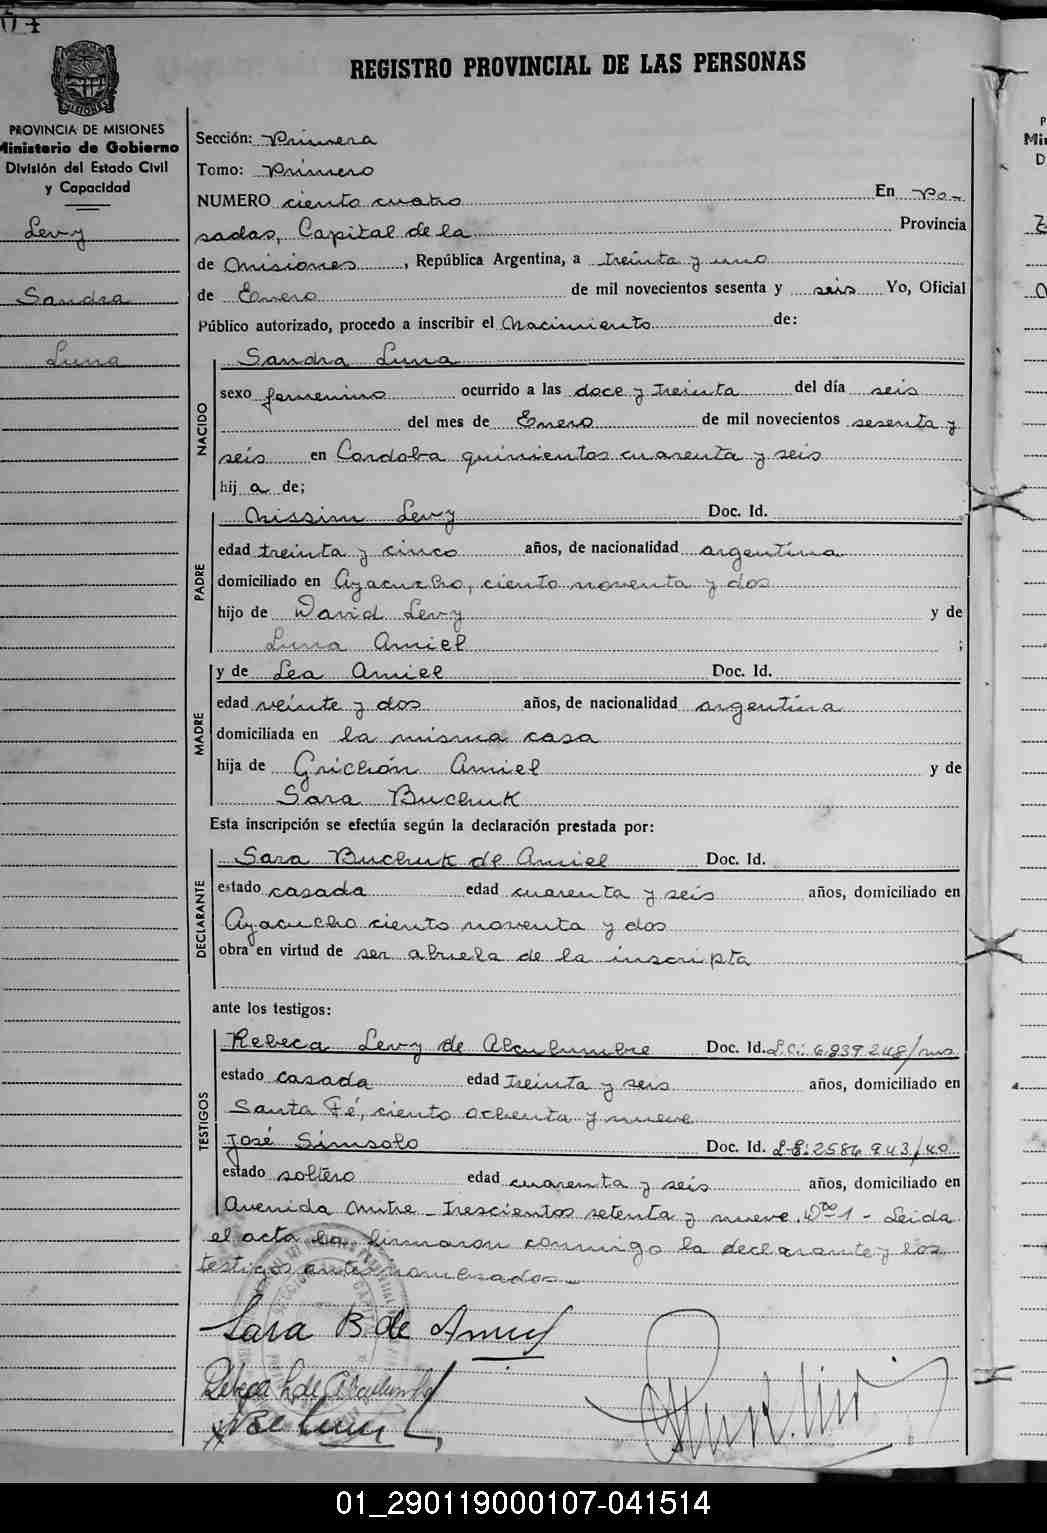 REGISTRO PROVINCIAL DE LAS PERSONAS
PROVINCIA DE MISIONES
Ministerio de Gobierno
División del Estado Civil
y Capacidad
Levy
Sandra
Luna
Sección: Primera
Tomo: Primero
NUMERO ciento cuatro En Po-
sadas, Capital de la Provincia
de Misiones, República Argentina, a treinta y uno
de Enero de mil novecientos sesenta y seis Yo, Oficial
Público autorizado, procedo a inscribir el Nacimiento de:
NACIDO
Sandra Luna
sexo femenino ocurrido a las doce y treinta del día seis
del mes de Enero de mil novecientos sesenta y
seis en Cordoba quinientos cuarenta y seis
hij a de;
PADRE
Nissim Levy Doc. Id.
edad treinta y cinco años, de nacionalidad argentina
domiciliado en Ayacucho, ciento noventa y dos
hijo de David Levy y de
Luna Amiel ;
MADRE
y de Lea Amiel Doc. Id.
edad veinte y dos años, de nacionalidad argentina
domiciliada en la misma casa
hija de Grichón Amiel y de
Sara Buchuk
Esta inscripción se efectúa según la declaración prestada por:
DECLARANTE
Sara Buchuk de Amiel Doc. Id.
estado casada edad cuarenta y seis años, domiciliado en
Ayacucho ciento noventa y dos
obra en virtud de ser abuela de la inscripta
ante los testigos:
TESTIGOS
Rebeca Levy de Alculumbre Doc. Id. L.C.: 6.839.248/mis
estado casada edad treinta y seis años, domiciliado en
Santa Fé, ciento ochenta y nueve
José Simsolo Doc. Id. L-E: 2584943/40
estado soltero edad cuarenta y seis años, domiciliado en
Avenida Mitre - trescientos setenta y nueve. Dto 1 - Leida
el acta la firmaron conmigo la declarante y los
testigos antes nombrados.-
Sara B. de Amiel
Rebeca L. de Alculumbre
01_290119000107-041514